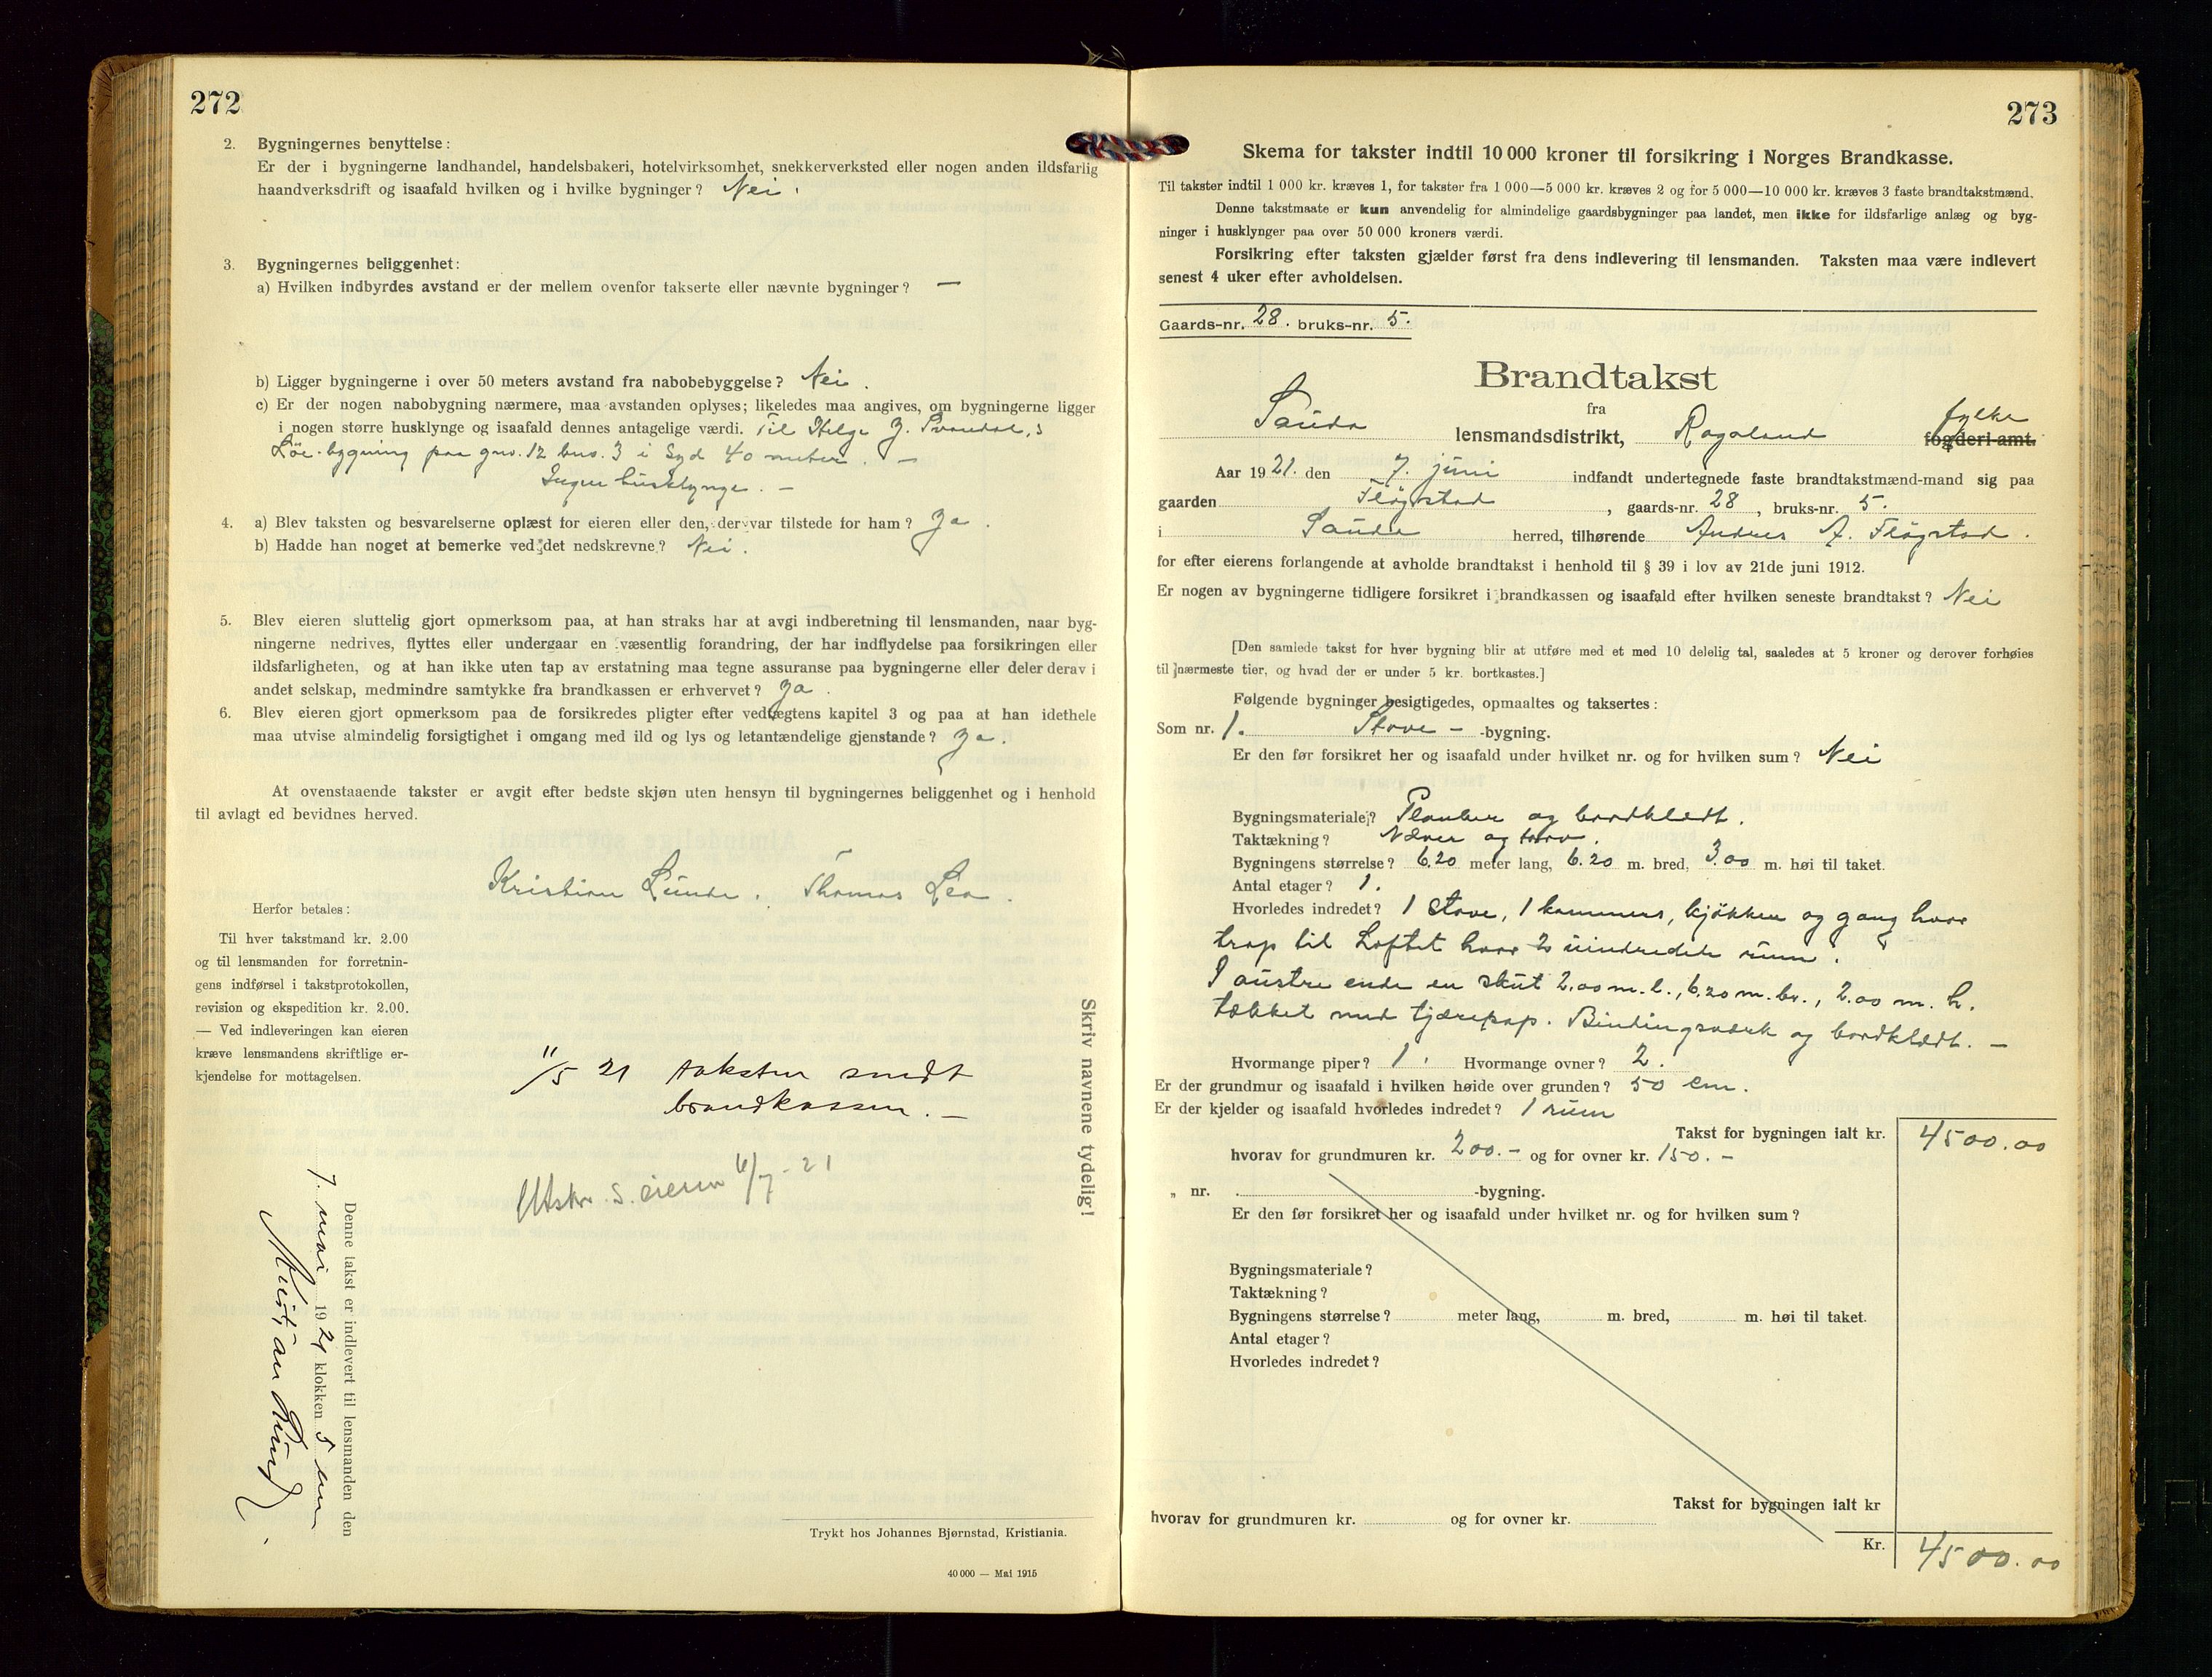 272
2. Bygningernes benyttelse:
Er der i bygningerne landhandel, handelsbakeri, hotelvirksomhet, snekkerverksted eller nogen anden ildsfarlig
haandverksdrift og isaafald hvilken og i hvilke bygninger? Nei.
3. Bygningernes beliggenhet:
a) Hvilken indbyrdes avstand er der mellem ovenfor takserte eller nævnte bygninger? —
b) Ligger bygningerne i over 50 meters avstand fra nabobebyggelse? Nei.
c) Er der nogen nabobygning nærmere, maa avstanden oplyses; likeledes maa angives, om bygningerne ligger
i nogen større husklynge og isaafald dennes antagelige værdi. Til Helge J. Svandal,s
Løe-bygning paa gnr. 12 bno. 3 i Syd 40 meter. —
Ingen husklynge. —
4. a) Blev taksten og besvarelserne oplæst for eieren eller den, der var tilstede for ham? Ja.
b) Hadde han noget at bemerke ved det nedskrevne? Nei.
5. Blev eieren sluttelig gjort opmerksom paa, at han straks har at avgi indberetning til lensmanden, naar byg-
ningerne nedrives, flyttes eller undergaar en væsentlig forandring, der har indflydelse paa forsikringen eller
ildsfarligheten, og at han ikke uten tap av erstatning maa tegne assuranse paa bygningerne eller deler derav i
andet selskap, medmindre samtykke fra brandkassen er erhvervet? Ja.
6. Blev eieren gjort opmerksom paa de forsikredes pligter efter vedtægtens kapitel 3 og paa at han idethele
maa utvise almindelig forsigtighet i omgang med ild og lys og letantændelige gjenstande? Ja.
At ovenstaaende takster er avgit efter bedste skjøn uten hensyn til bygningernes beliggenhet og i henhold
til avlagt ed bevidnes herved.
Kristian Lunde. Thomas Lea.
Herfor betales:
Til hver takstmand kr. 2.00
og til lensmanden for forretnin-
gens indførsel i takstprotokollen,
revision og ekspedition kr. 2.00.
— Ved indleveringen kan eieren
kræve lensmandens skriftlige er-
kjendelse for mottagelsen.
11/5 21 taksten sendt
brandkassen. —
Utskr. s. eieren 4/7-21
Skriv navnene tydelig!
Denne takst er indlevert til lensmanden den
7. mai 1921 klokken 5 em
Trykt hos Johannes Bjørnstad, Kristiania.
40 000 — Mai 1915
273
Skema for takster indtil 10 000 kroner til forsikring i Norges Brandkasse.
Til takster indtil 1 000 kr. kræves 1, for takster fra 1 000—5 000 kr. kræves 2 og for 5 000—10 000 kr. kræves 3 faste brandtakstmænd.
Denne takstmaate er kun anvendelig for almindelige gaardsbygninger paa landet, men ikke for ildsfarlige anlæg og byg-
ninger i husklynger paa over 50 000 kroners værdi.
Forsikring efter taksten gjælder først fra dens indlevering til lensmanden. Taksten maa være indlevert
senest 4 uker efter avholdelsen.
Gaards-nr. 28. bruks-nr. 5.
Brandtakst
fra
Sauda lensmandsdistrikt, Rogaland fylke fogderi-amt.
Aar 1921. den 7. juni indfandt undertegnede faste brandtakstmænd-mand sig paa
gaarden Fløgstad, gaards-nr. 28, bruks-nr. 5.
i Sauda herred, tilhørende Andres A. Fløgstad.
for efter eierens forlangende at avholde brandtakst i henhold til § 39 i lov av 21de juni 1912.
Er nogen av bygningerne tidligere forsikret i brandkassen og isaafald efter hvilken seneste brandtakst? Nei
[Den samlede takst for hver bygning blir at utføre med et med 10 delelig tal, saaledes at 5 kroner og derover forhøies
til nærmeste tier, og hvad der er under 5 kr. bortkastes.]
Følgende bygninger besigtigedes, opmaaltes og taksertes:
Som nr. 1. Stove- -bygning.
Er den før forsikret her og isaafald under hvilket nr. og for hvilken sum? Nei
Bygningsmateriale? Planker og bordklædt.
Taktækning? Næver og torv.
Bygningens størrelse? 6.20 meter lang, 6.20 m. bred, 3.00 m. høi til taket.
Antal etager? 1.
Hvorledes indredet? 1 stove, 1 kammers, kjøkken og gang hvor
trap til Loftet hvor 2 uindredete rum.
I austre ende en skut 2.00 m. l., 6.20 m. br., 2.00 m. h.
tækket med tjærepap. Bindingsværk og bordklædt. —
Hvormange piper? 1. Hvormange ovner? 2.
Er der grundmur og isaafald i hvilken høide over grunden? 50 cm.
Er der kjelder og isaafald hvorledes indredet? 1 rum
Takst for bygningen ialt kr. 4500.00
hvorav for grundmuren kr. 200.- og for ovner kr. 150.-
„ nr. -bygning.
Er den før forsikret her og isaafald under hvilket nr. og for hvilken sum?
Bygningsmateriale?
Taktækning?
Bygningens størrelse? meter lang, m. bred, m. høi til taket.
Antal etager?
Hvorledes indredet?
Takst for bygningen ialt kr
hvorav for grundmuren kr. og for ovner kr.
Kr. 4500.00